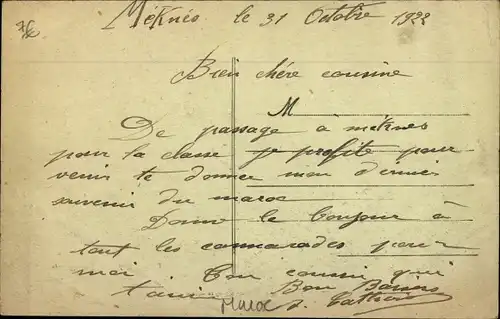 Méknès le 31 Octobre 1922
Bien chére cousine
M
De passage a méknes
pour la classe je profite pour
venir te donner mon dernier
souvenir du maroc
Donne le bonjour à
tout les cammarades pour
moi Ton cousin qui
t'aime Bon Baisers
Maroc